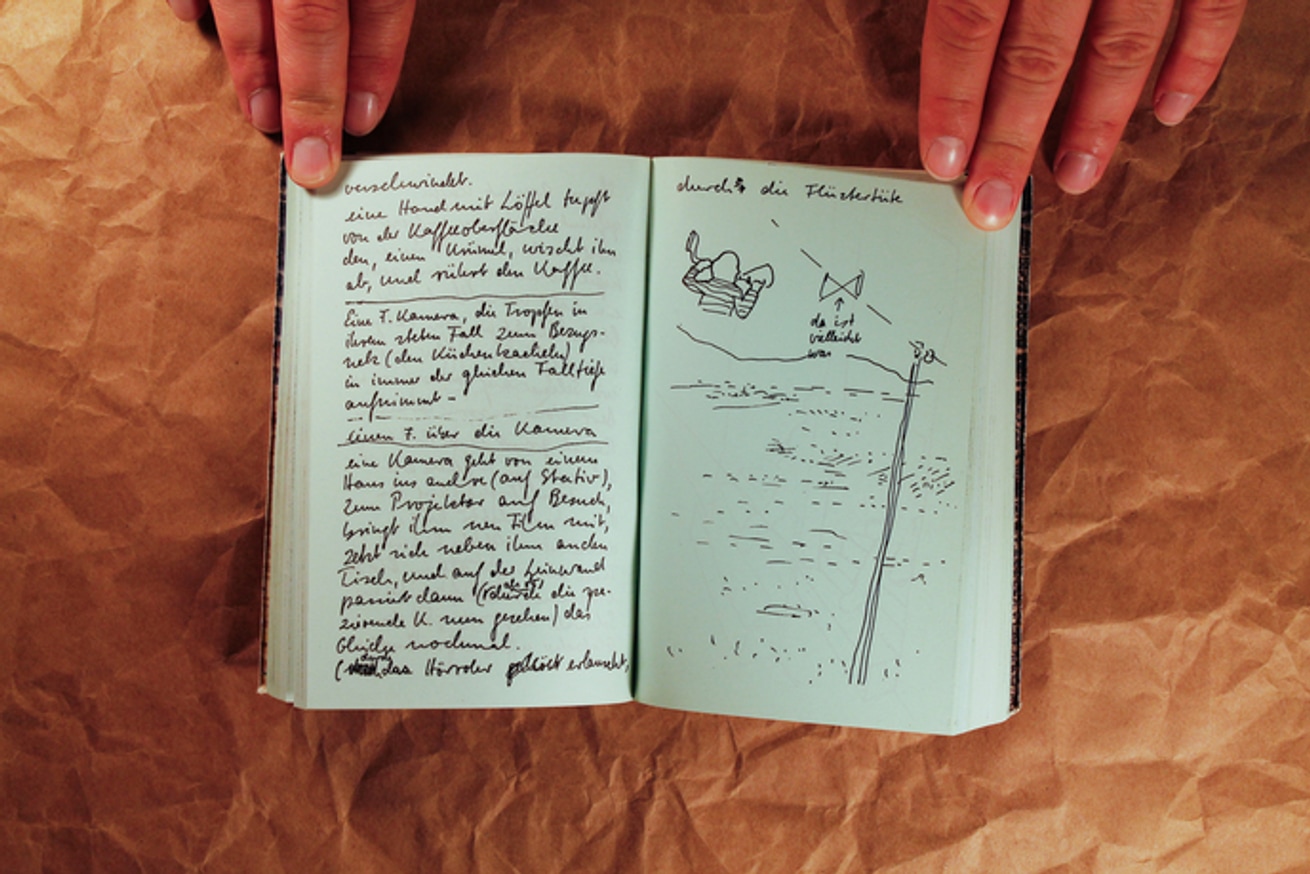 verschwindet.
eine Hand mit Löffel tupft
von der Kaffeeoberfläche
den, einen Krümel, wischt ihn
ab, und rührt den Kaffee.
Eine F. Kamera, die Tropfen in
ihrem steten Fall zum Bezugs-
netz (den Küchenkacheln)
in immer der gleichen Falltiefe
aufnimmt -
einen F. über die Kamera
eine Kamera geht von einem
Haus ins andre (auf Stativ),
zum Projektor auf Besuch,
bringt ihm nen Film mit,
setzt sich neben ihm an den
Tisch, und auf der Leinwand
passiert dann (durch die pro-
zierende K. nun gesehen) das
Gleiche nochmal.
(durch das Hörrohr erlauscht,
durch die Flüstertüte
da ist
vielleicht
was